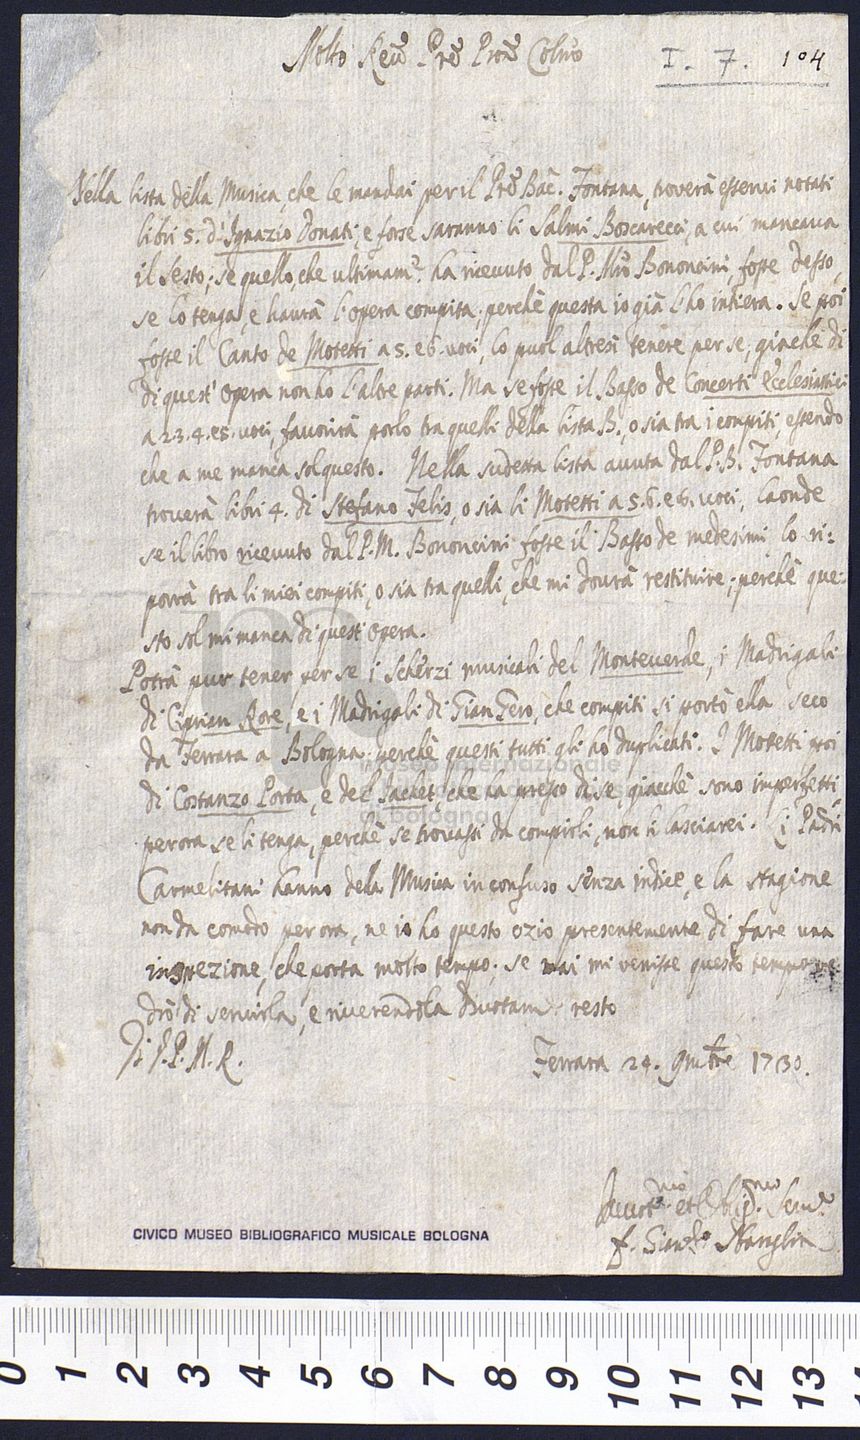 Molto Reu.do P.re P.ron Col.mo
I. 7. 104
Nella lista della Musica, che le mandai per il P.re Bac. Fontana, troverà esservi notati
libri 5. d'Ignazio Donati, e forse saranno li Salmi Boscarecci, a cui mancava
il sesto; se quello, che ultimam.te ha ricevuto dal P. M.ro Bononcini fosse desso,
se lo tenga, e haurà l'opera compita, perchè questa io già l'ho intiera. Se poi
fosse il Canto de Motetti a 5. e 6. voci, lo puol altresì tenere per se, giache di
di quest'opera non ho l'altre parti. Ma se fosse il Basso de Concerti Ecclesiastici
a 2.3.4. e 5. voci, favorirà porlo tra quelli della lista B., o sia tra i compiti, essendo
che a me manca sol questo. Nella sudetta lista auuta dal P.B. Fontana
troverà libri 4. di Stefano Felis, o sia li Motetti a 5.6. e 8. voci, laonde
se il libro ricevuto dal P.M. Bononcini fosse il Basso de medesimi lo ri=
porrà tra li miei compiti, o sia tra quelli, che mi dourà restituire; perchè que=
sto sol mi manca di quest'opera.
Potrà pur tener per se i Scherzi musicali del Monteverde, i Madrigali
di Ciprian Rore, e i Madrigali di Gian Gero, che compiti si portò ella seco
da Ferrara a Bologna perchè questi tutti gli ho duplicati. I Motetti poi
di Costanzo Porta, e del Jachet, che ha presso di se, giacchè sono imperfetti
per ora se li tenga, perchè se trovassi da compirli, non li lasciarei. Li Padri
Carmelitani hanno della Musica in confuso senza indice, e la stagione
non da comodo per ora, ne io ho questo ozio presentemente di fare una
inspezione, che porta molto tempo; se mai mi venisse questo tempo ve
drò di servirla, e riverendola Diuotam.te resto
Di V.P.M.R.
Ferrara 24. 9mbre 1730.
Diuot.mo et Obligmo. Seru.e
CIVICO MUSEO BIBLIOGRAFICO MUSICALE BOLOGNA
museo internazionale
di bologna
0 1 2 3 4 5 6 7 8 9 10 11 12 13